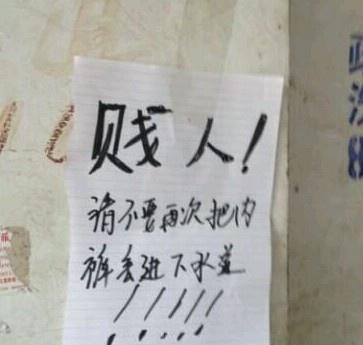 贱人!
请不要再次把内
裤丢进下水道
!!!!!